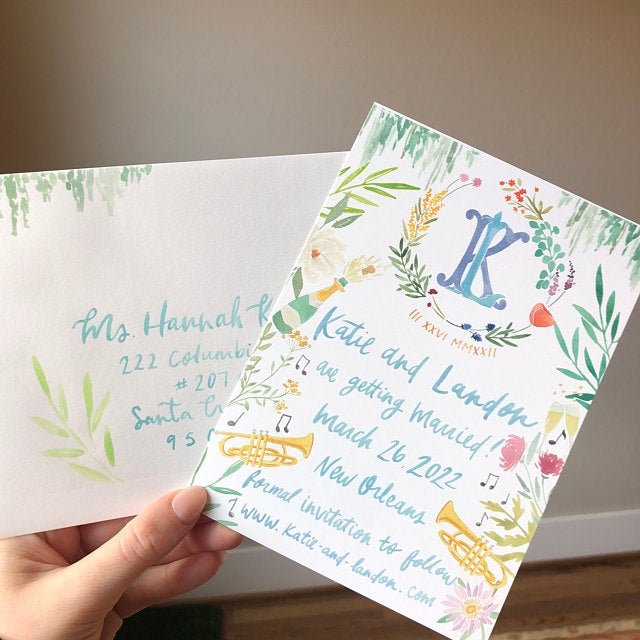 Ms. Hannah
222
# 207
Santa
9 5
K
III XXVI MMXXII
Katie and Landon
are getting Married!
March 26, 2022
New Orleans
formal invitation to follow
www.Katie-and-landon.com